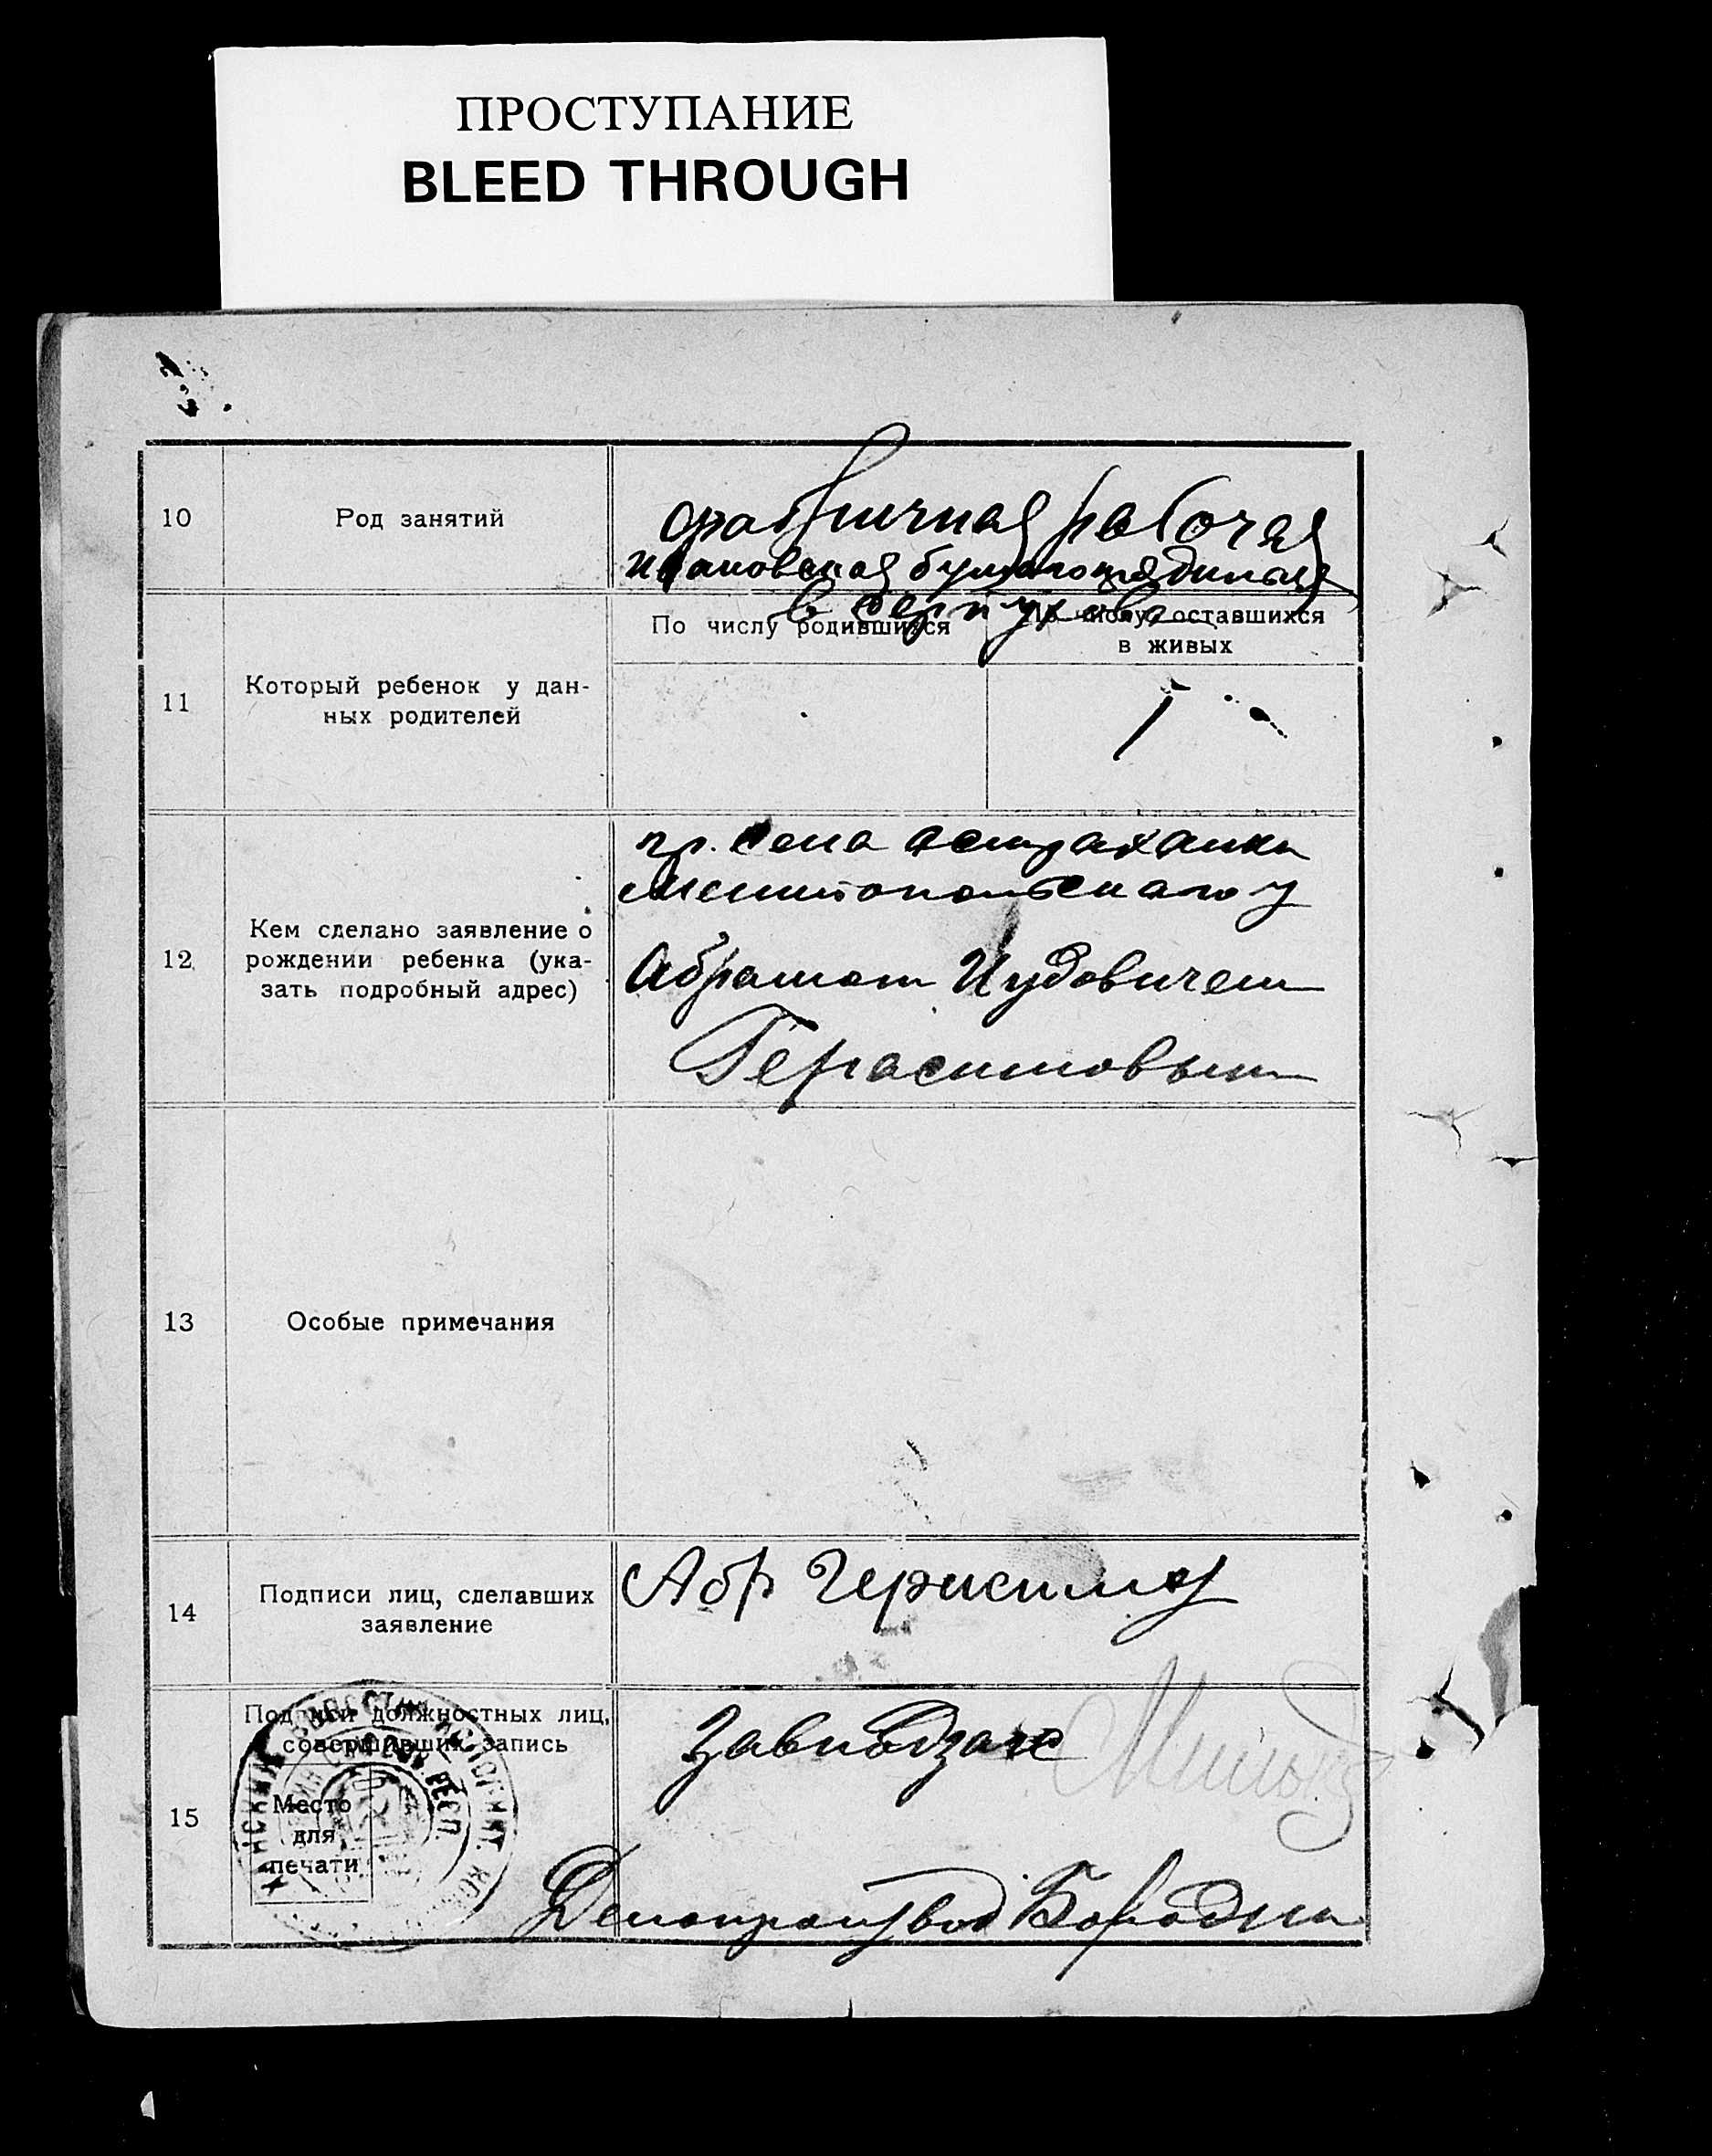 ПРОСТУПАНИЕ
BLEED THROUGH
10
Род занятий
фабричная рабочая
в Серпухове
11
Который ребенок у дан-
ных родителей
По числу родившихся
По числу оставшихся
в живых
1
12
Кем сделано заявление о
рождении ребенка (ука-
зать подробный адрес)
гр. села Астраханки
Мелитопольского у
Абрамом Иудовичем
Герасимовым
13
Особые примечания
14
Подписи лиц, сделавших
заявление
Абр Герасимов
15
Подписи должностных лиц,
совершивших запись
Место
для
печати
Завподзагс
Делопроизвод Бородин